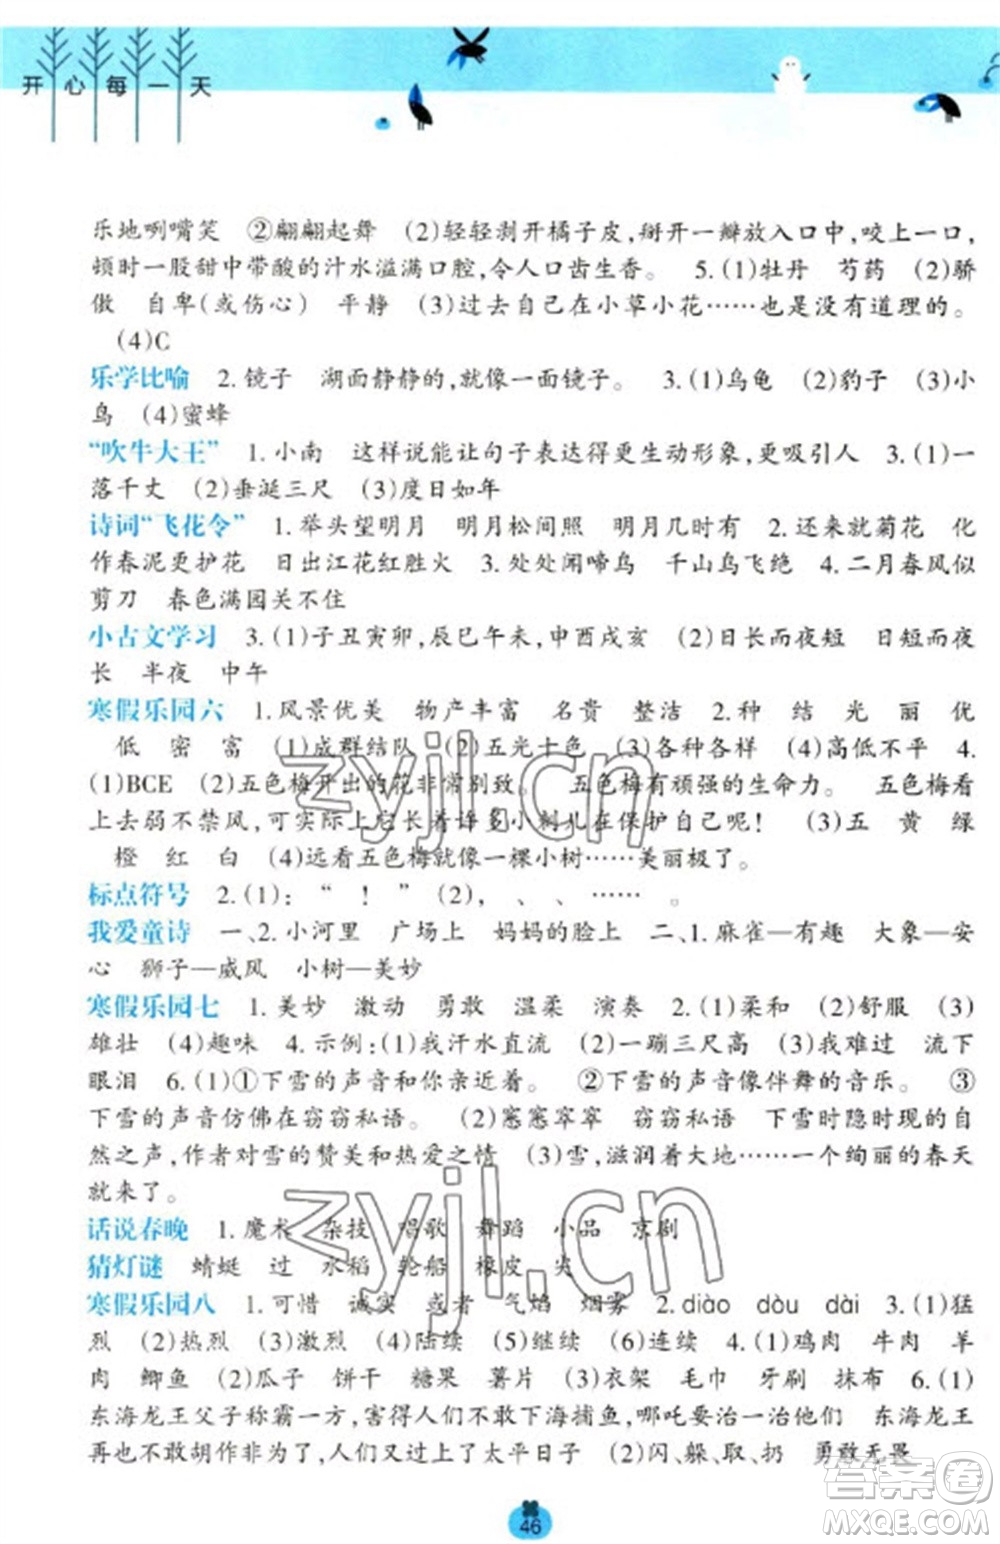 开心每一天
乐地咧嘴笑 ②翩翩起舞 (2)轻轻剥开橘子皮,掰开一瓣放入口中,咬上一口,
顿时一股甜中带酸的汁水溢满口腔,令人口齿生香。 5.(1)牡丹 芍药 (2)骄
傲 自卑(或伤心) 平静 (3)过去自己在小草小花……也是没有道理的。
(4)C
乐学比喻 2.镜子 湖面静静的,就像一面镜子。 3.(1)乌龟 (2)豹子 (3)小
鸟 (4)蜜蜂
“吹牛大王” 1.小南 这样说能让句子表达得更生动形象,更吸引人 3.(1)一
落千丈 (2)垂涎三尺 (3)度日如年
诗词“飞花令” 1.举头望明月 明月松间照 明月几时有 2.还来就菊花 化
作春泥更护花 日出江花红胜火 3.处处闻啼鸟 千山鸟飞绝 4.二月春风似
剪刀 春色满园关不住
小古文学习 3.(1)子丑寅卯,辰巳午未,申酉戌亥 (2)日长而夜短 日短而夜
长 半夜 中午
寒假乐园六 1.风景优美 物产丰富 名贵 整洁 2.种 结 光 丽 优
低 密 富 (1)成群结队 (2)五光十色 (3)各种各样 (4)高低不平 4.
(1)BCE (2)五色梅开出的花非常别致。 五色梅有顽强的生命力。 五色梅看
上去弱不禁风,可实际上它长着许多小刺儿在保护自己呢! (3)五 黄 绿
橙 红 白 (4)远看五色梅就像一棵小树……美丽极了。
标点符号 2.(1): “ ! ” (2), 、 、 …… 。
我爱童诗 一、2.小河里 广场上 妈妈的脸上 二、1.麻雀—有趣 大象—安
心 狮子—威风 小树—美妙
寒假乐园七 1.美妙 激动 勇敢 温柔 演奏 2.(1)柔和 (2)舒服 (3)
雄壮 (4)趣味 4.示例:(1)我汗水直流 (2)一蹦三尺高 (3)我难过 流下
眼泪 6.(1)①下雪的声音和你亲近着。 ②下雪的声音像伴舞的音乐。 ③
下雪的声音仿佛在窃窃私语。 (2)窸窸窣窣 窃窃私语 下雪时隐时现的自
然之声,作者对雪的赞美和热爱之情 (3)雪,滋润着大地……一个绚丽的春天
就来了。
话说春晚 1.魔术 杂技 唱歌 舞蹈 小品 京剧
猜灯谜 蜻蜓 过 水稻 轮船 橡皮 尖
寒假乐园八 1.可惜 诚实 或者 气焰 烟雾 2.diào dòu dài 3.(1)猛
烈 (2)热烈 (3)激烈 (4)陆续 (5)继续 (6)连续 4.(1)鸡肉 牛肉 羊
肉 鲫鱼 (2)瓜子 饼干 糖果 薯片 (3)衣架 毛巾 牙刷 抹布 6.(1)
东海龙王父子称霸一方,害得人们不敢下海捕鱼,哪吒要治一治他们 东海龙王
再也不敢胡作非为了,人们又过上了太平日子 (2)闪、躲、取、扔 勇敢无畏
46
zyjl.cn
zyjl.cn
答案圈
MXQE.COM